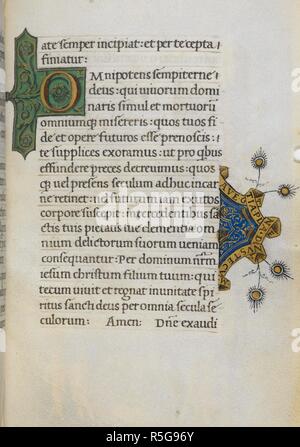 ate semper incipiat: et per te cepta
finiatur:
OMnipotens sempiterne
deus: qui uiuorum domi
naris simul et mortuorũ
omniumq; misereris: quos tuos fi
de et opere futuros esse prenoscis:
te supplices exoramus: ut pro qbus
effundere preces decreuimus: quos
q; uel presens seculum adhuc in car
ne retinet: uel futurum iam exutos
corpore suscepit: intercedentibus sã
ctis tuis pietatis tue clementia om
nium delictorum suorum ueniam
consequantur: Per dominum nr̃m
iesum christum filium tuum: qui
tecum uiuit et regnat in unitate spi
ritus sancti deus per omnia secula se
culorum: Amen: Dñe exaudi
alamy
Image ID: R5G96Y
www.alamy.com